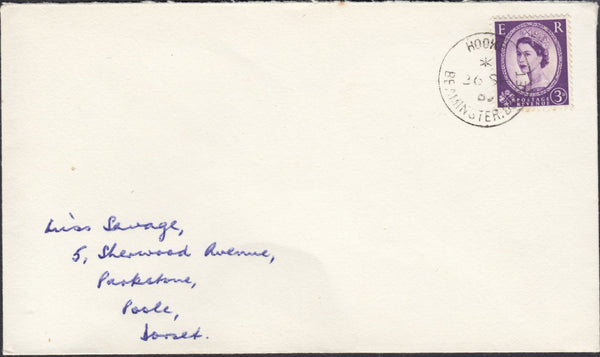 E R
HOOK
*
26 S
BEAMINSTER. D
POSTAGE
REVENUE
3D
Miss Savage,
5, Sherwood Avenue,
Parkstone,
Poole,
Dorset.